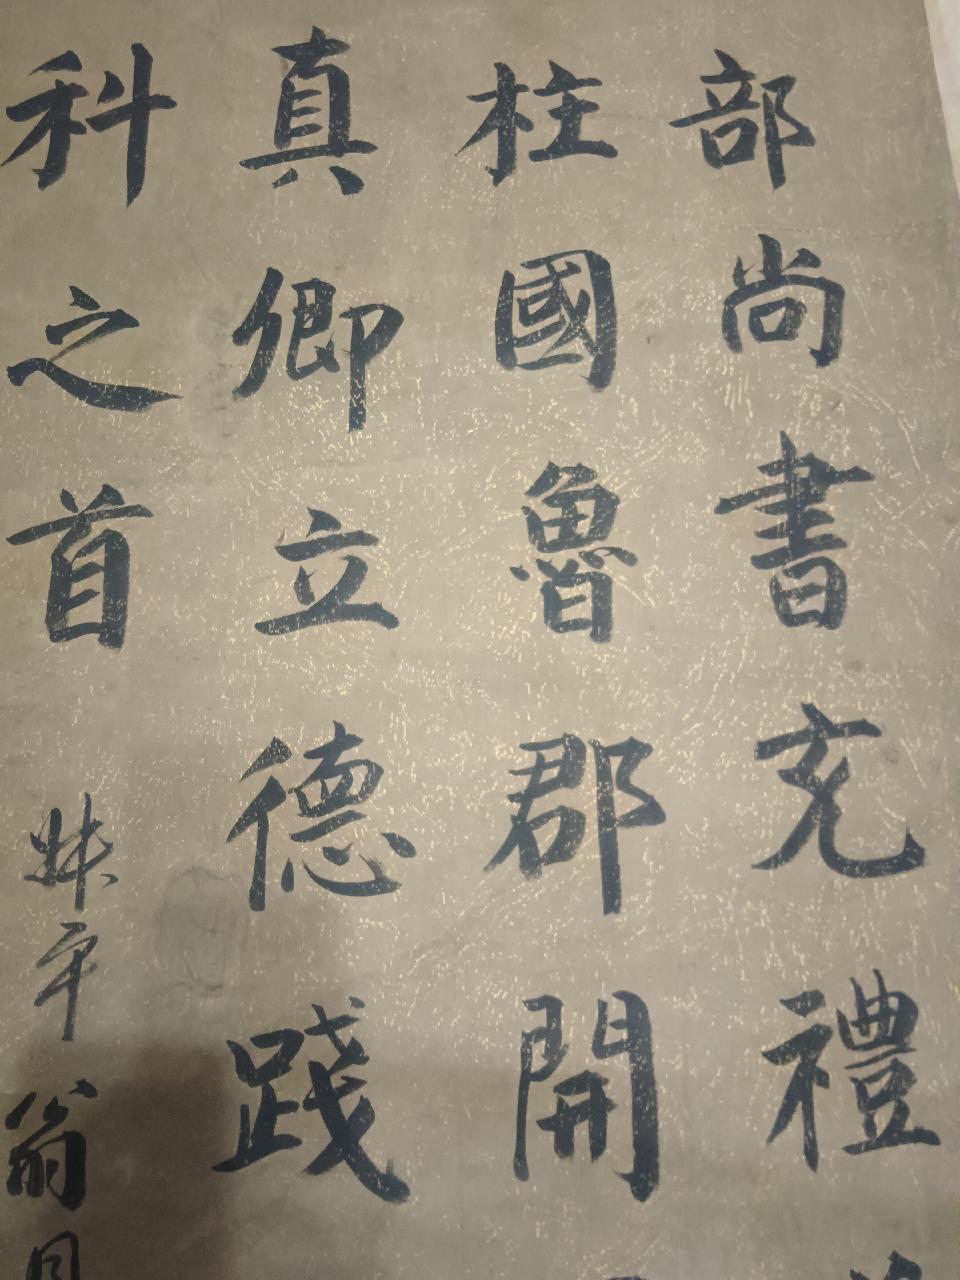 部尚書充禮
柱國魯郡開
真卿立德踐
科之首
叔平翁同